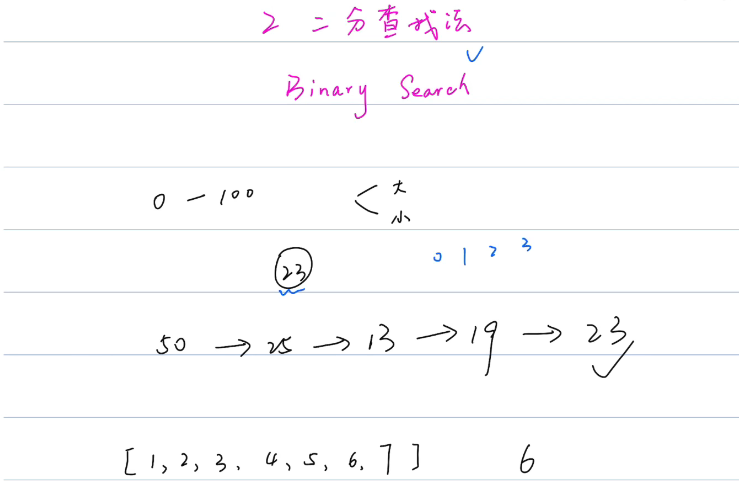 2 二分查找法
Binary Search
0 — 100 < 大 小
23 0 1 2 3
50 → 25 → 13 → 19 → 23
[ 1, 2, 3, 4, 5, 6, 7 ] 6